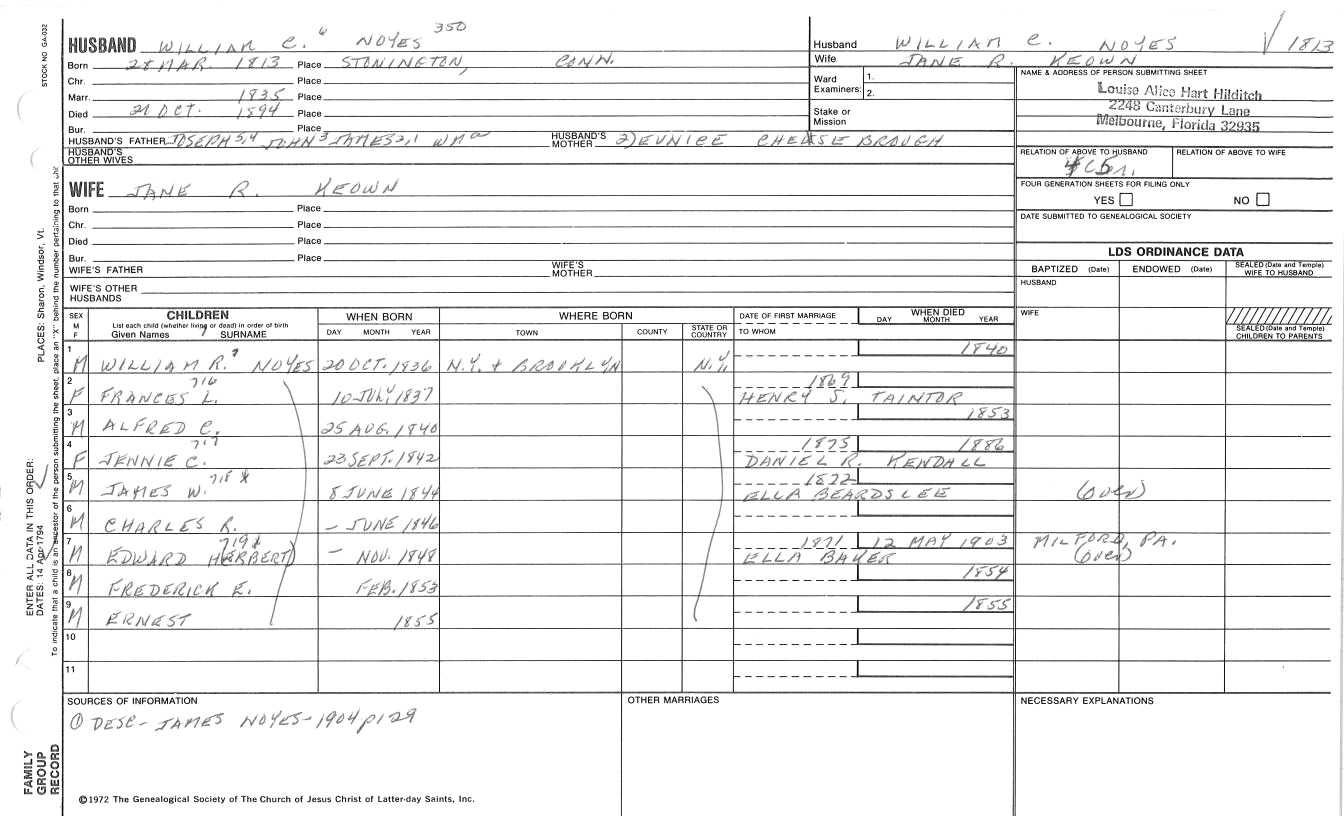 STOCK NO GA-032
HUSBAND WILLIAM C. 6 NOYES 350
Born 28 MAR. 1813 Place STONINGTON, CONN.
Chr. Place
Marr. 1835 Place
Died 21 OCT. 1894 Place
Bur. Place
HUSBAND'S FATHER JOSEPH 5,4 JOHN 3 JAMES 2,1 WM a HUSBAND'S MOTHER 2) EUNICE CHEASE BROUGH
HUSBAND'S OTHER WIVES
Husband WILLIAM C. NOYES √ 1813
Wife JANE R. KEOWN
Ward Examiners: 1.
2.
Stake or Mission
NAME & ADDRESS OF PERSON SUBMITTING SHEET
Louise Alice Hart Hilditch
2248 Canterbury Lane
Melbourne, Florida 32935
RELATION OF ABOVE TO HUSBAND RELATION OF ABOVE TO WIFE
FOUR GENERATION SHEETS FOR FILING ONLY
YES NO
DATE SUBMITTED TO GENEALOGICAL SOCIETY
WIFE JANE R. KEOWN
Born Place
Chr. Place
Died Place
Bur. Place
WIFE'S FATHER WIFE'S MOTHER
WIFE'S OTHER HUSBANDS
LDS ORDINANCE DATA
BAPTIZED (Date) ENDOWED (Date) SEALED (Date and Temple) WIFE TO HUSBAND
HUSBAND
WIFE
SEALED (Date and Temple) CHILDREN TO PARENTS
SEX M F CHILDREN WHEN BORN WHERE BORN DATE OF FIRST MARRIAGE WHEN DIED
List each child (whether living or dead) in order of birth
Given Names 7 SURNAME DAY MONTH YEAR TOWN COUNTY STATE OR COUNTRY TO WHOM DAY MONTH YEAR
1 M WILLIAM R. 7 NOYES 20 OCT. 1836 N.Y. & BROOKLYN N.Y. 1840
2 F FRANCES L. 716 10 JULY 1837 1869 HENRY S. TAINTOR
3 M ALFRED C. 25 AUG. 1840 1853
4 F JENNIE C. 717 23 SEPT. 1842 1875 1886 DANIEL R. KENDALL
5 M JAMES W. 718 * 8 JUNE 1844 1872 ELLA BEARDSLEE (over)
6 M CHARLES R. – JUNE 1846
7 M EDWARD HERBERT) 719 * – NOV. 1848 1871 12 MAY 1903 ELLA BAKER MILFORD, PA. (over)
8 M FREDERICK E. FEB. 1853 1854
9 M ERNEST 1855 1855
10
11
SOURCES OF INFORMATION OTHER MARRIAGES NECESSARY EXPLANATIONS
① DESC – JAMES NOYES – 1904 p129
©1972 The Genealogical Society of The Church of Jesus Christ of Latter-day Saints, Inc.
FAMILY GROUP RECORD
ENTER ALL DATA IN THIS ORDER:
DATES: 14 Apr 1794 PLACES: Sharon, Windsor, Vt.
To indicate that a child is an ancestor of the person submitting the sheet, place an "X" behind the number pertaining to that